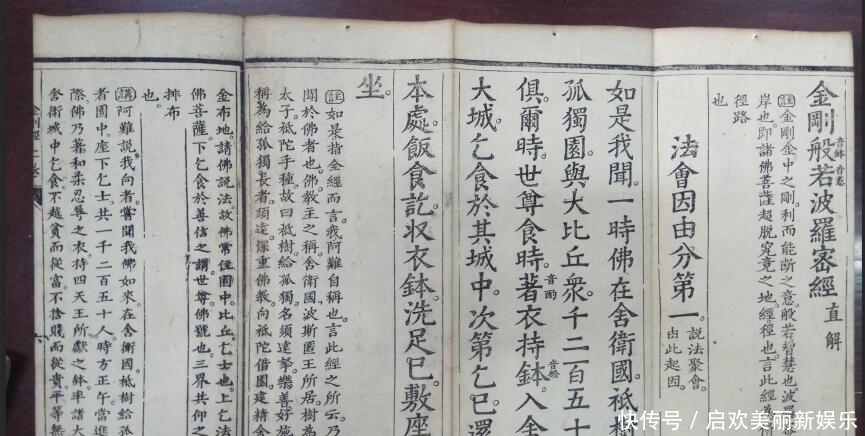 金剛般若波羅密經直解
音鉢 音惹
註金剛金中之剛利而能斷之意般若智慧也波羅
岸也即諸佛菩薩超脫究竟之地經徑也言此經
徑路
也
法會因由分第一說法聚會由此起因
如是我聞一時佛在舍衛國祗樹
孤獨園與大比丘衆千二百五十
俱爾時世尊食時著衣持鉢入舍
音酌
大城乞食於其城中次第乞已還
本處飯食訖収衣鉢洗足已敷座
坐
註如是指全經而言我阿難自稱也言此經之所云乃
聞於佛者也佛教主之稱舍衛國波斯匿王所居樹為
太子祗陀手種故曰祗樹給孤獨名須達拏樂善好施
稱為給孤獨長者須達深重佛教向祗陀借園建精舍
金布地請佛說法故佛常住園中比丘乞士也上乞法
佛菩薩下乞食於善信之謂世尊佛號也三界共仰之
排布
也
講阿難說我向者嘗聞我佛如來在舍衛國祗樹給孤
者園中座下乞士共一千二百五十人時方正午當進
際佛乃著和柔忍辱之衣持四天王所獻之鉢率諸大
舍衛城中乞食不越貧而從富不捨賤而從貴平等無
金剛經上卷
六
快传号／启欢美丽新娱乐